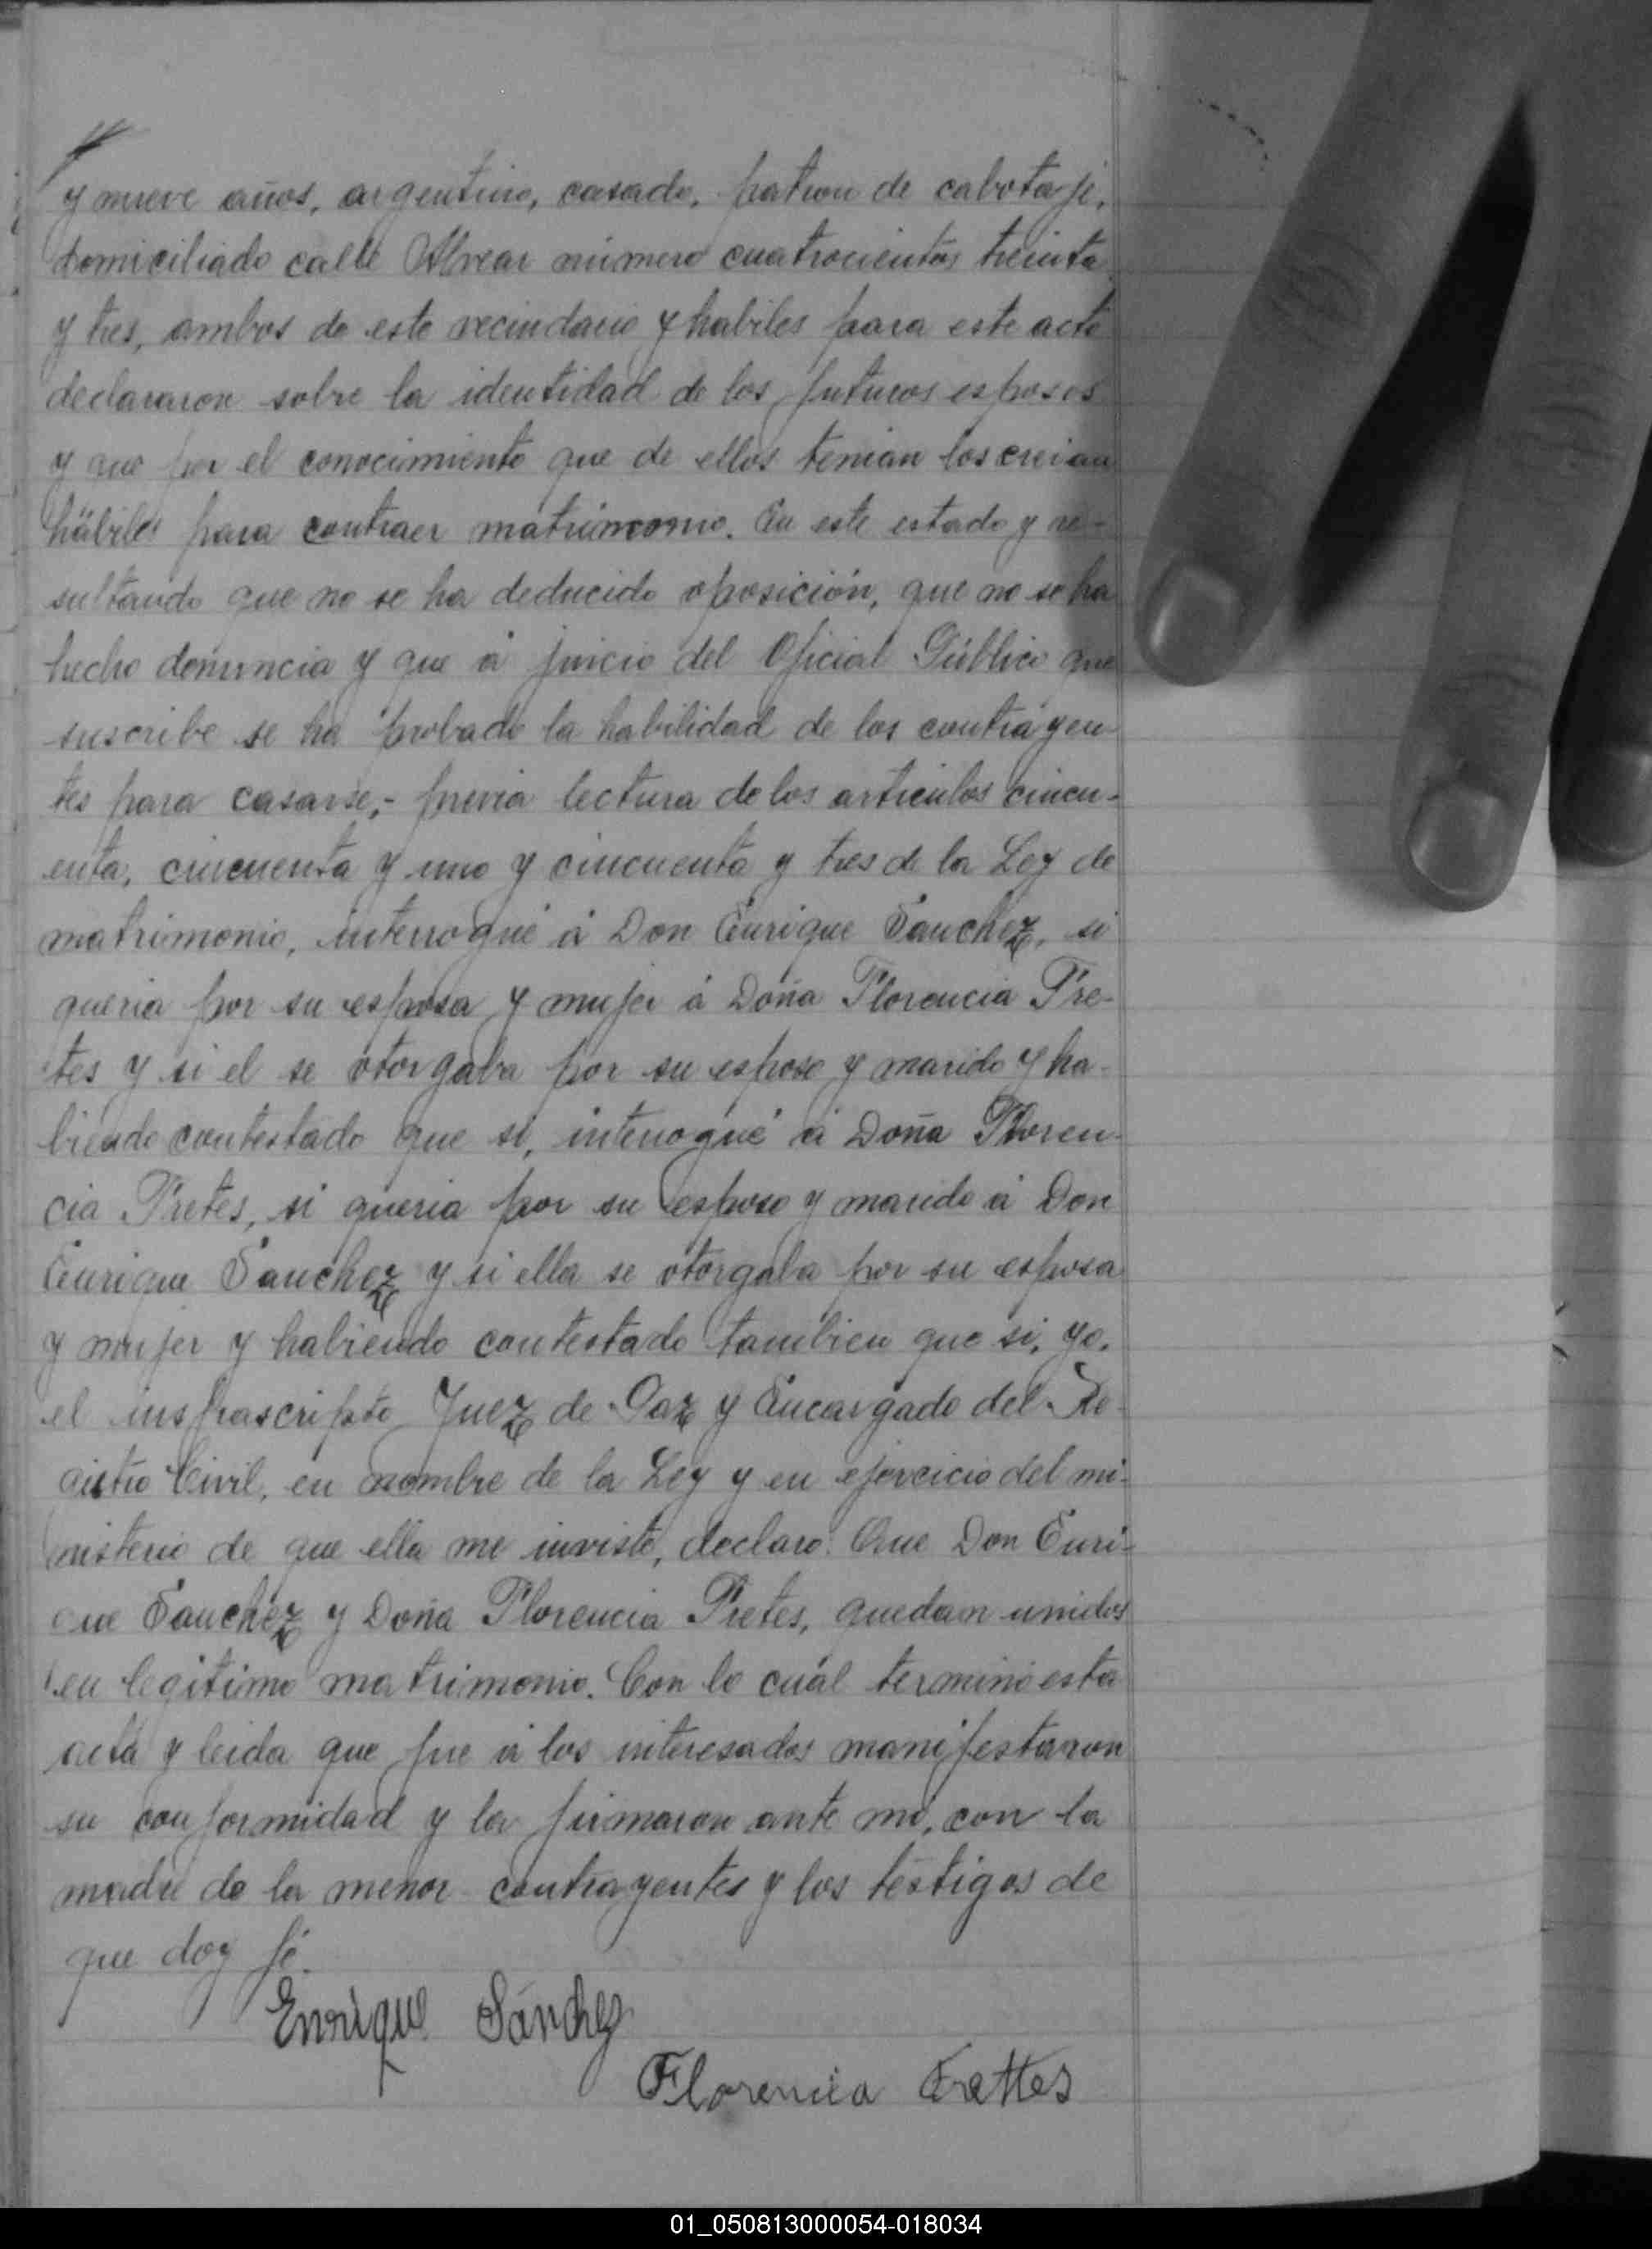 y nueve años, argentino, casado, patron de cabotaje,
domiciliado calle Alvear número cuatrocientos treinta
y tres, ambos de este vecindario y habiles para este acto
declararon sobre la identidad de los futuros esposos
y que por el conocimiento que de ellos tenian los creian
hábiles para contraer matrimonio. En este estado y re-
sultando que no se ha deducido oposición, que no se ha
hecho denuncia y que á juicio del Oficial Público que
suscribe se ha probado la habilidad de los contrayen-
tes para casarse,- previa lectura de los artículos cincu-
enta, cincuenta y uno y cincuenta y tres de la Ley de
matrimonio, interrogué á Don Enrique Sanchez, si
queria por su esposa y mujer á Doña Florencia Fre-
tes y si el se otorgaba por su esposo y marido y ha-
biendo contestado que si, interrogué á Doña Floren-
cia Fretes, si queria por su esposo y marido á Don
Enrique Sanchez y si ella se otorgaba por su esposa
y mujer y habiendo contestado tambien que si, yo,
el insfrascripto Juez de Paz y Encargado del Re-
gistro Civil, en nombre de la Ley y en ejercicio del mi-
nisterio de que ella me inviste, declaro: Que Don Enri-
que Sanchez y Doña Florencia Fretes, quedan unidos
en legitimo matrimonio. Con lo cuál terminó esta
acta y leida que fue á los interesados manifestaron
su conformidad y la firmaron ante mí, con la
madre de la menor contrayentes y los testigos de
que doy fé.
Enrique Sánchez
Florencia Frettes
01_050813000054-018034